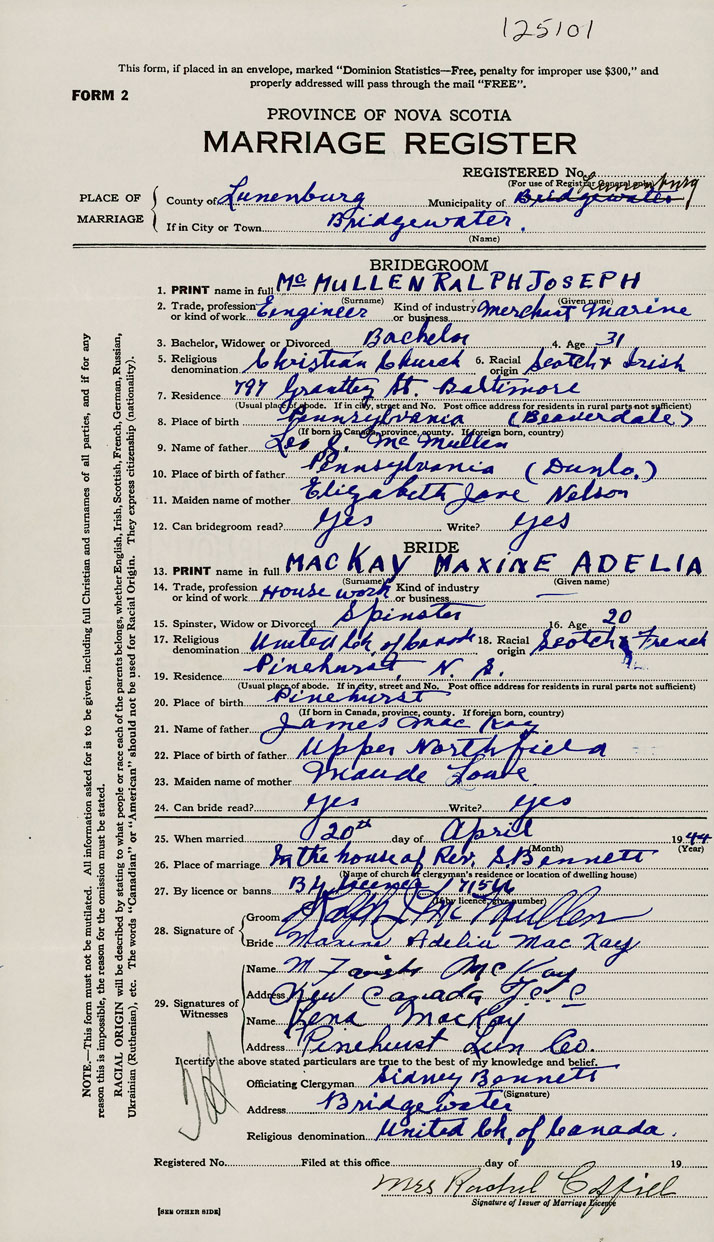 125101
This form, if placed in an envelope, marked "Dominion Statistics—Free, penalty for improper use $300," and
properly addressed will pass through the mail "FREE".
FORM 2
PROVINCE OF NOVA SCOTIA
MARRIAGE REGISTER
REGISTERED No.
(For use of Registrar General only)
PLACE OF MARRIAGE
County of Lunenburg Municipality of Bridgewater Lunenburg
If in City or Town Bridgewater.
(Name)
BRIDEGROOM
1. PRINT name in full McMULLEN RALPH JOSEPH
(Surname) (Given name)
2. Trade, profession or kind of work Engineer Kind of industry or business Merchant Marine
3. Bachelor, Widower or Divorced Bachelor 4. Age 31
5. Religious denomination Christian Church 6. Racial origin Scotch & Irish
7. Residence 797 St. Baltimore
(Usual place of abode. If in city, street and No. Post office address for residents in rural parts not sufficient)
8. Place of birth Pennsylvania (Beaverdale)
(If born in Canada, province, county. If foreign born, country)
9. Name of father Leo J. McMullen
10. Place of birth of father Pennsylvania (Dunlo.)
11. Maiden name of mother Elizabeth Jane Nelson
12. Can bridegroom read? Yes Write? Yes
BRIDE
13. PRINT name in full MACKAY MAXINE ADELIA
(Surname) (Given name)
14. Trade, profession or kind of work House work Kind of industry or business —
15. Spinster, Widow or Divorced Spinster 16. Age 20
17. Religious denomination United Ch. of Canada 18. Racial origin Scotch & French
19. Residence Pinehurst, N. S.
(Usual place of abode. If in city, street and No. Post office address for residents in rural parts not sufficient)
20. Place of birth Pinehurst
(If born in Canada, province, county. If foreign born, country)
21. Name of father James MacKay
22. Place of birth of father Upper Northfield
23. Maiden name of mother Maude
24. Can bride read? Yes Write? Yes
25. When married 20th day of April 1944
(Month) (Year)
26. Place of marriage In the house of Rev. S. Bennett
(Name of church or clergyman's residence or location of dwelling house)
27. By licence or banns By Licence 171566
(If by licence, give number)
28. Signature of
Groom Ralph J. McMullen
Bride Maxine Adelia MacKay
29. Signatures of Witnesses
Name M McKay
Address New Canada
Name Lena MacKay
Address Pinehurst Lun Co.
I certify the above stated particulars are true to the best of my knowledge and belief.
Officiating Clergyman Sidney Bennett
(Signature)
Address Bridgewater
Religious denomination United Ch. of Canada.
Registered No. Filed at this office day of 19
Mrs Rachel
Signature of Issuer of Marriage Licence
[SEE OTHER SIDE]
NOTE.—This form must not be mutilated. All information asked for is to be given, including full Christian and surnames of all parties, and if for any
reason this is impossible, the reason for the omission must be stated.
RACIAL ORIGIN will be described by stating to what people or race each of the parents belongs, whether English, Irish, Scottish, French, German, Russian,
Ukrainian (Ruthenian), etc. The words "Canadian" or "American" should not be used for Racial Origin. They express citizenship (nationality).